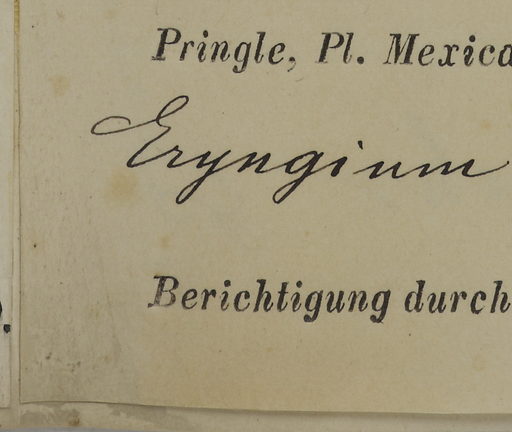 Pringle, Pl. Mexica
Eryngium
Berichtigung durch